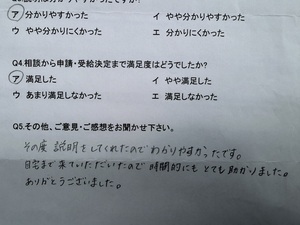 ア 分かりやすかった　イ やや分かりやすかった
ウ やや分かりにくかった　エ 分かりにくかった
Q4.相談から申請・受給決定まで満足度はどうでしたか?
ア 満足した　イ やや満足した
ウ あまり満足しなかった　エ 満足しなかった
Q5.その他、ご意見・ご感想をお聞かせ下さい。
その度 説明をしてくれたのでわかりやすかったです。
自宅まで来ていただいたので時間的にも とても助かりました。
ありがとうございました。